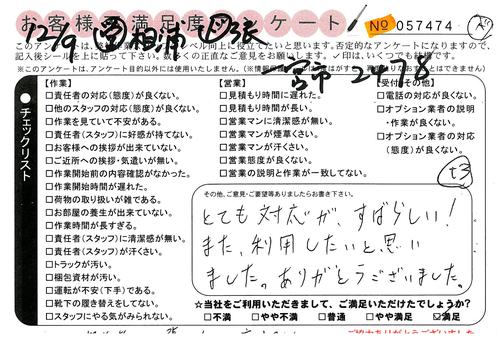 お客様満足度アンケート
No 057474
12/9
2478
このアンケートは、
記入後シールを上に貼って下さい。数多くの正直なご意見をお願いします。✓印は、いくつつけても結構です。
※このアンケートは、アンケート目的以外には使用いたしません。
チェックリスト
【作業】
□責任者(態度)が良くない。
□他のスタッフの対応(態度)が良くない。
□作業を見ていて不安がある。
□責任者(スタッフ)に好感が持てない。
□お客様への挨拶が出来ていない。
□ご近所への挨拶・気遣いが無い。
□作業開始前の内容確認がなかった。
□作業開始時間が遅れた。
□荷物の取り扱いが雑である。
□お部屋の養生が出来ていない。
□作業時間が長すぎる。
□責任者(スタッフ)に清潔感が無い。
□責任者(スタッフ)が汗くさい。
□トラックが汚い。
□梱包資材が汚い。
□運転が不安(下手)である。
□靴下の履き替えをしてない。
□スタッフにやる気がみられない。
【営業】
□見積もり時間に遅れた。
□見積もり時間が長い。
□営業マンに清潔感が無い。
□営業マンが煙草くさい。
□営業マンが汗くさい。
□営業態度が良くない。
□営業の説明と作業が一致してない。
【受付/その他】
□電話の対応が良くない。
□オプション業者の説明
・作業が良くない。
□オプション業者の対応
(態度)が良くない。
t3
その他、ご意見・ご要望等ありましたらお書き下さい。
とても対応が、すばらしい!
また、利用したいと思い
ました。ありがとうございました。
☆当社をご利用いただきまして、ご満足いただけたでしょうか?
□不満 □やや不満 □普通 □やや満足 ☑満足